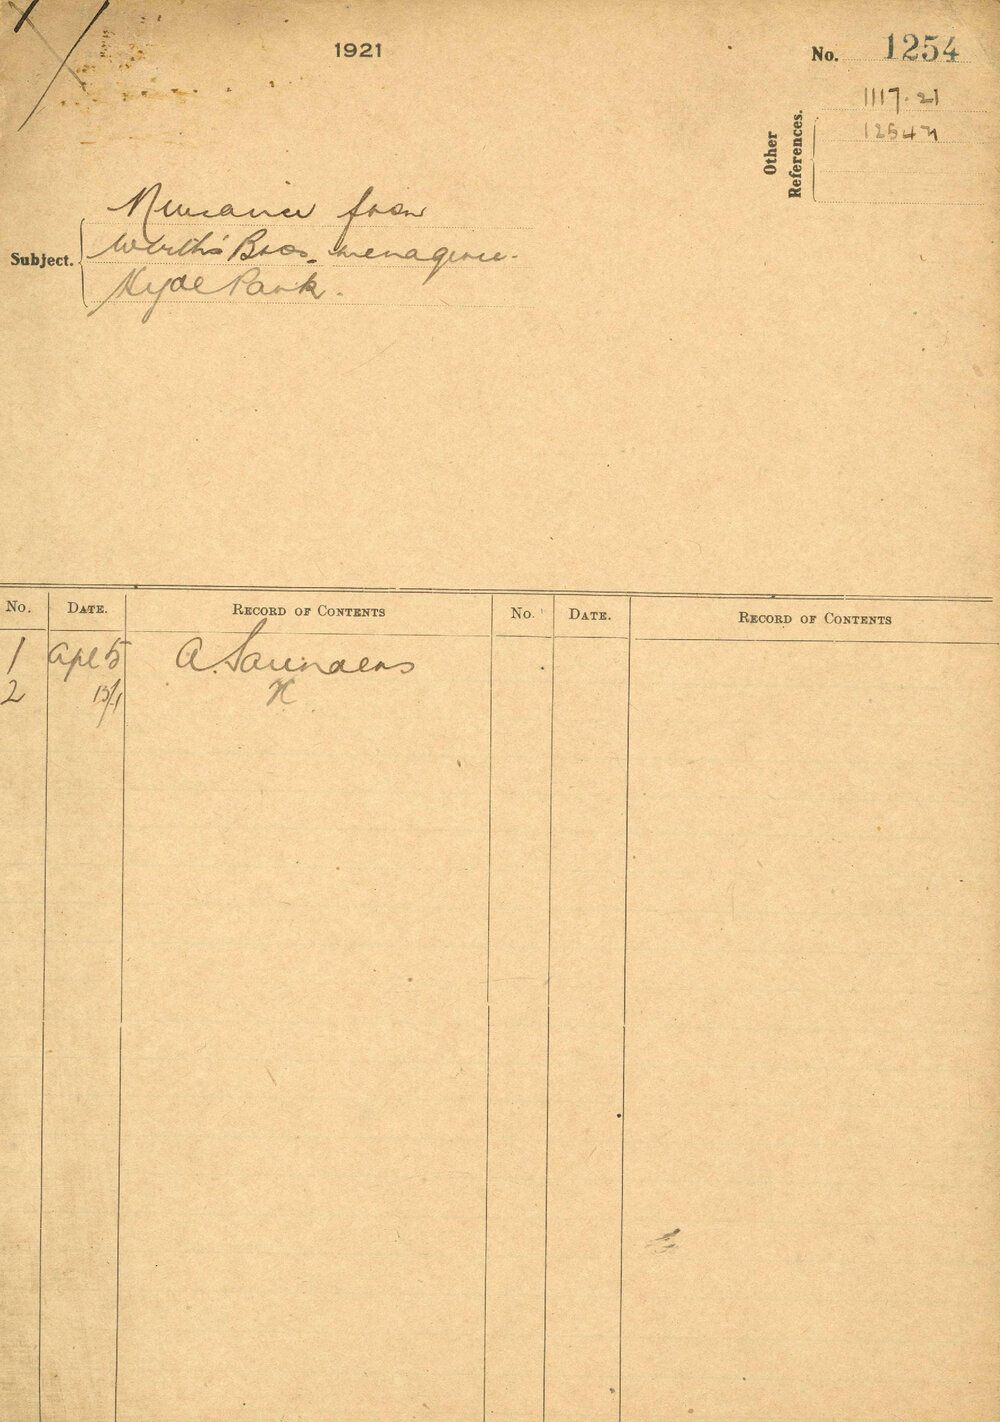 1921
No. 1254
Other References.
1117.21
1254 21
Subject.
Nuisance from
Wirth's Bros. menagerie.
Hyde Park.
No. DATE. RECORD OF CONTENTS No. DATE. RECORD OF CONTENTS
1 Apl 5 A. Saunders
2